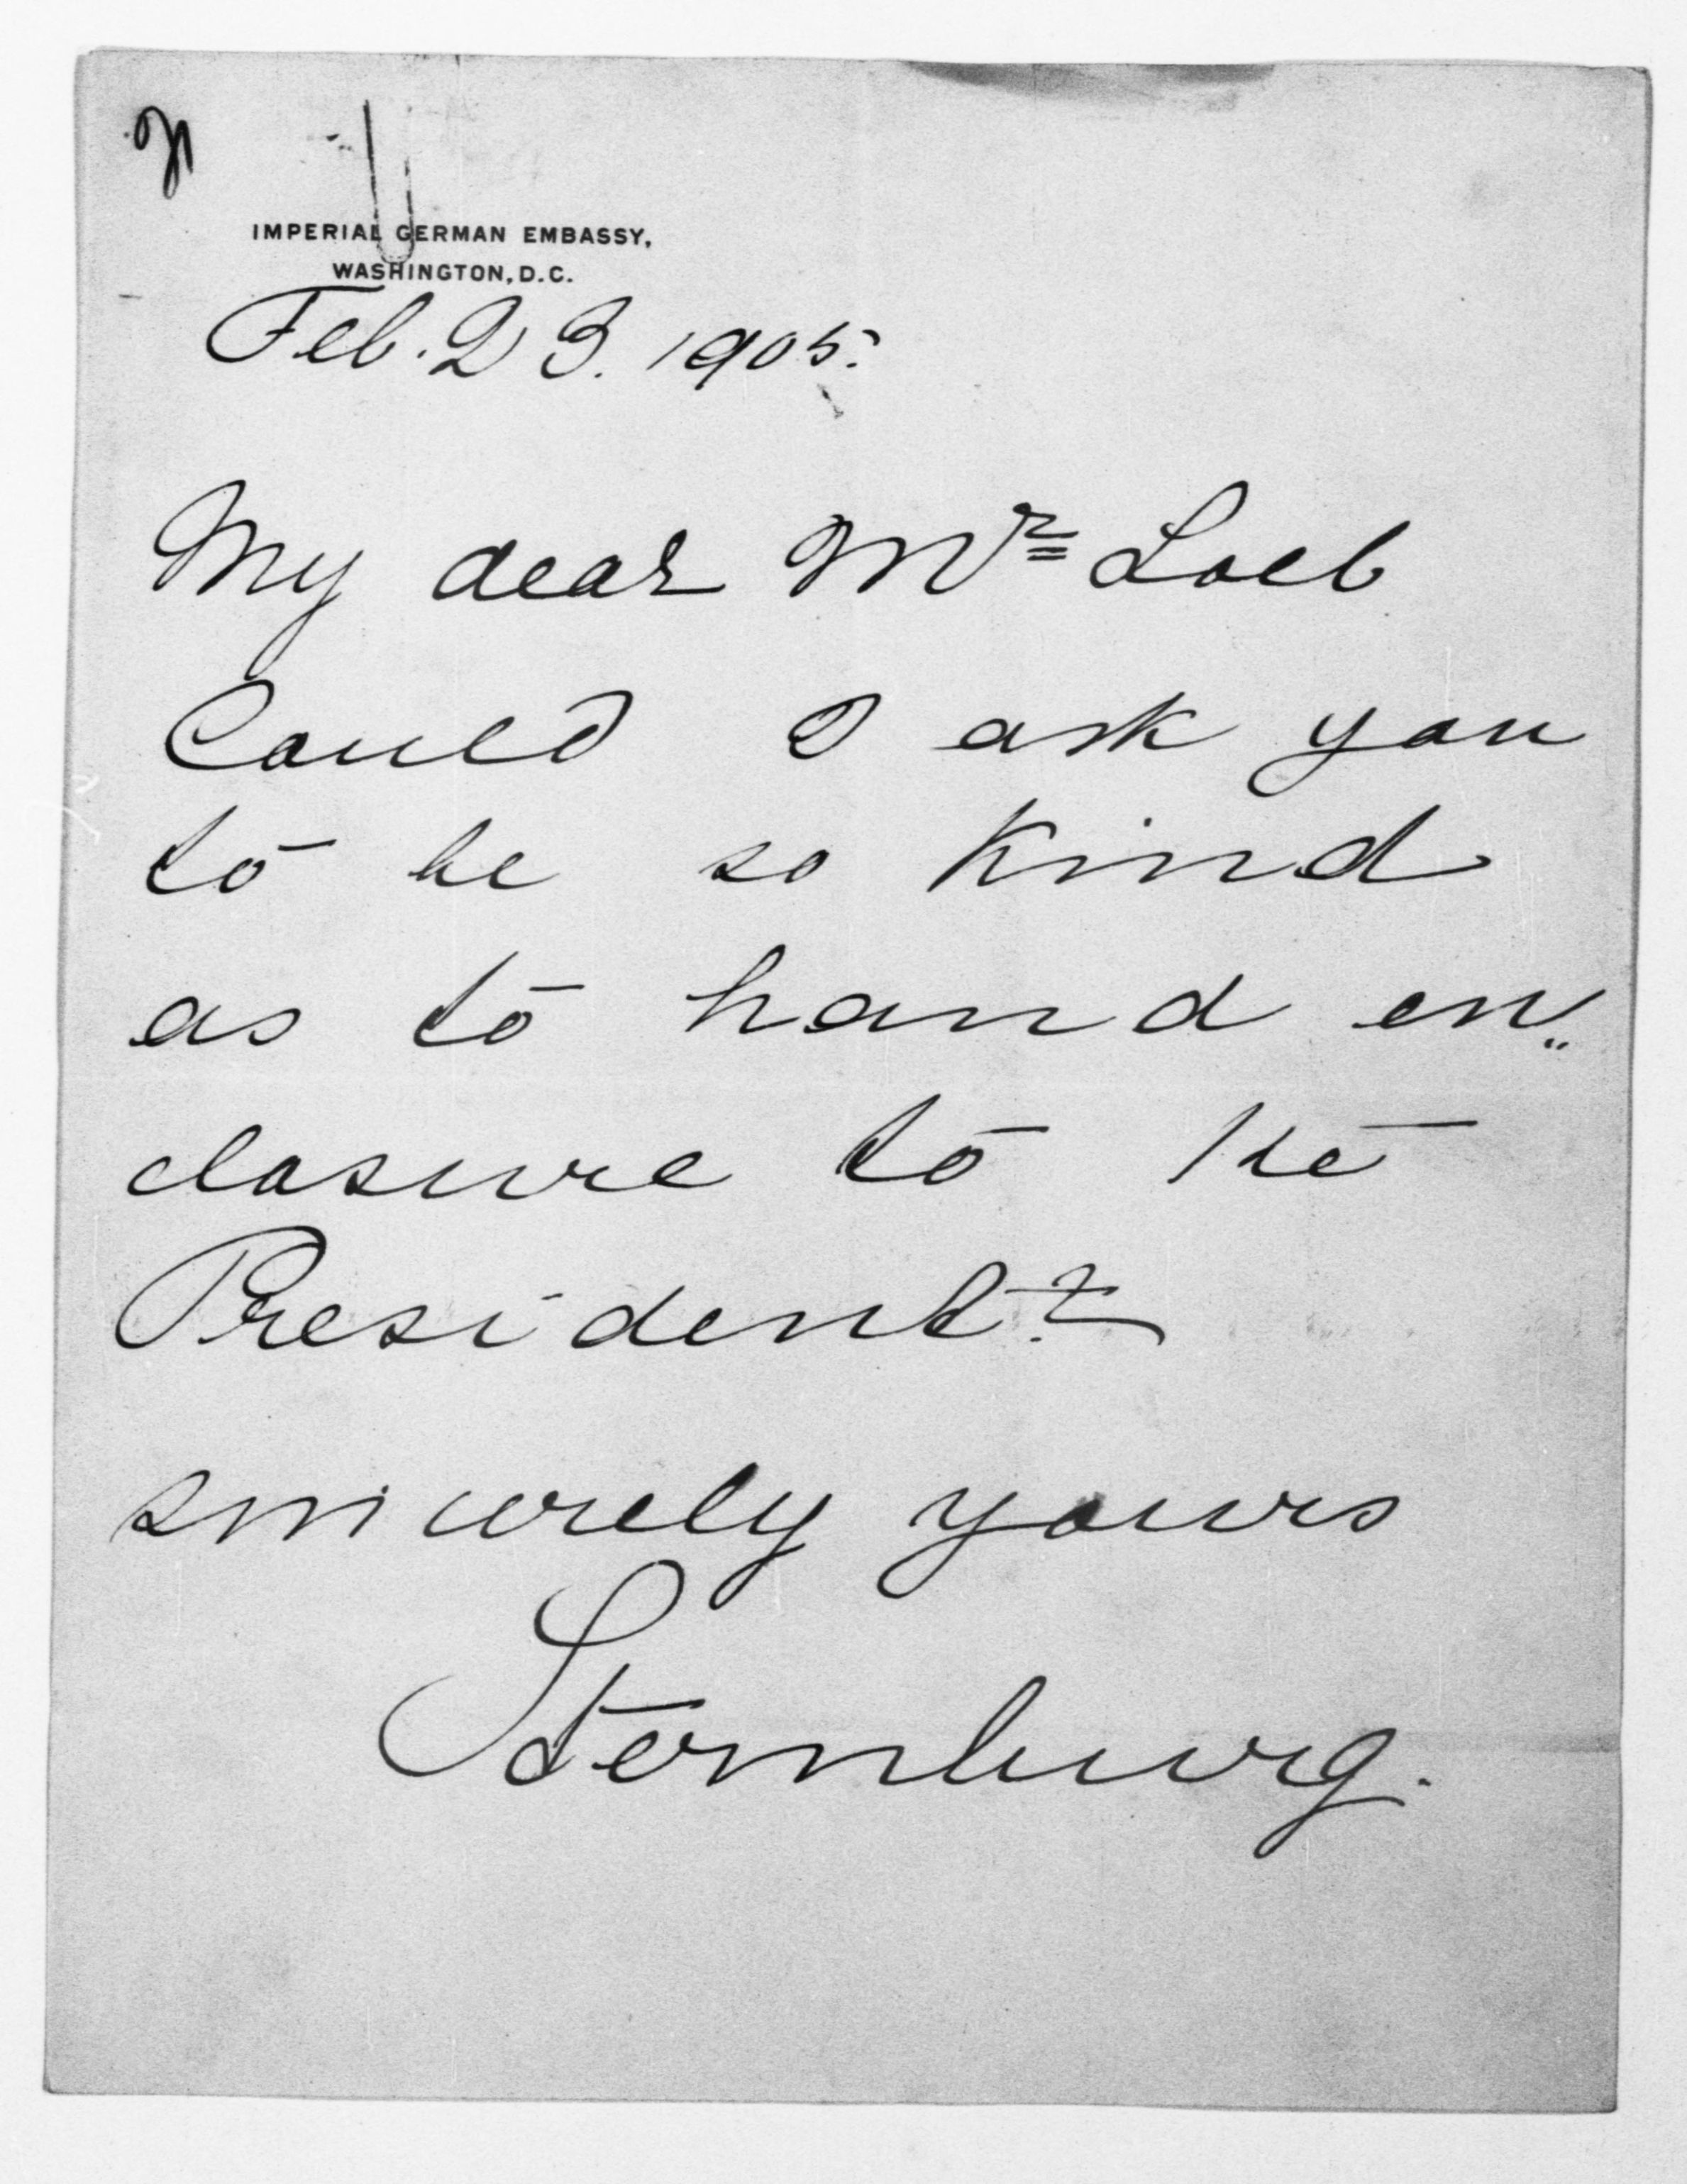 IMPERIAL GERMAN EMBASSY,
WASHINGTON, D.C.
Feb. 23. 1905.
My dear Mr Loeb
Could I ask you
to be so kind
as to hand en„
closure to the
President?
sincerely yours
Sternburg.